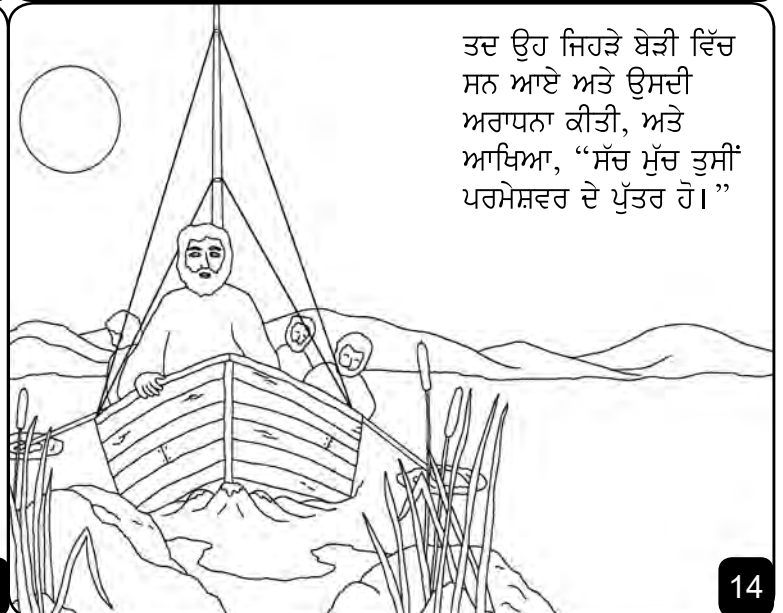 ਤਦ ਉਹ ਜਿਹੜੇ ਬੇੜੀ ਵਿੱਚ
ਸਨ ਆਏ ਅਤੇ ਉਸਦੀ
ਅਰਾਧਨਾ ਕੀਤੀ, ਅਤੇ
ਆਖਿਆ, “ਸੱਚ ਮੁੱਚ ਤੁਸੀਂ
ਪਰਮੇਸ਼ਵਰ ਦੇ ਪੁੱਤਰ ਹੋ।”
14